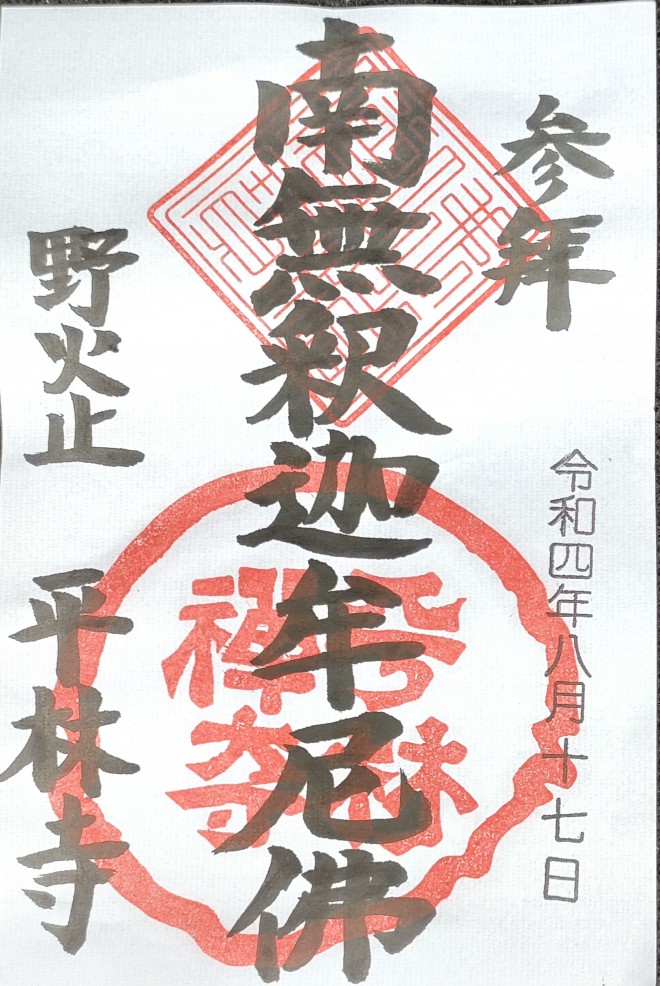 参拜
令和四年八月十七日
南無釈迦牟尼佛
野火止
平林寺
平林
禅寺